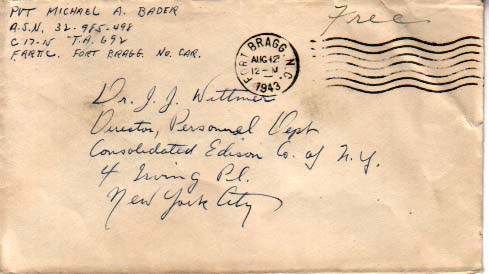 PVT MICHAEL A. BADER
A.S.N. 32-985-498
C-17-15 T.A. 692
FARTC. FORT BRAGG. NO. CAR.
Free
FORT BRAGG. N.C.
AUG 12
12-M
1943
Dr. J. J. Wittmer
Director, Personnel Dept
Consolidated Edison Co. of N.Y.
4 Irving Pl.
New York City